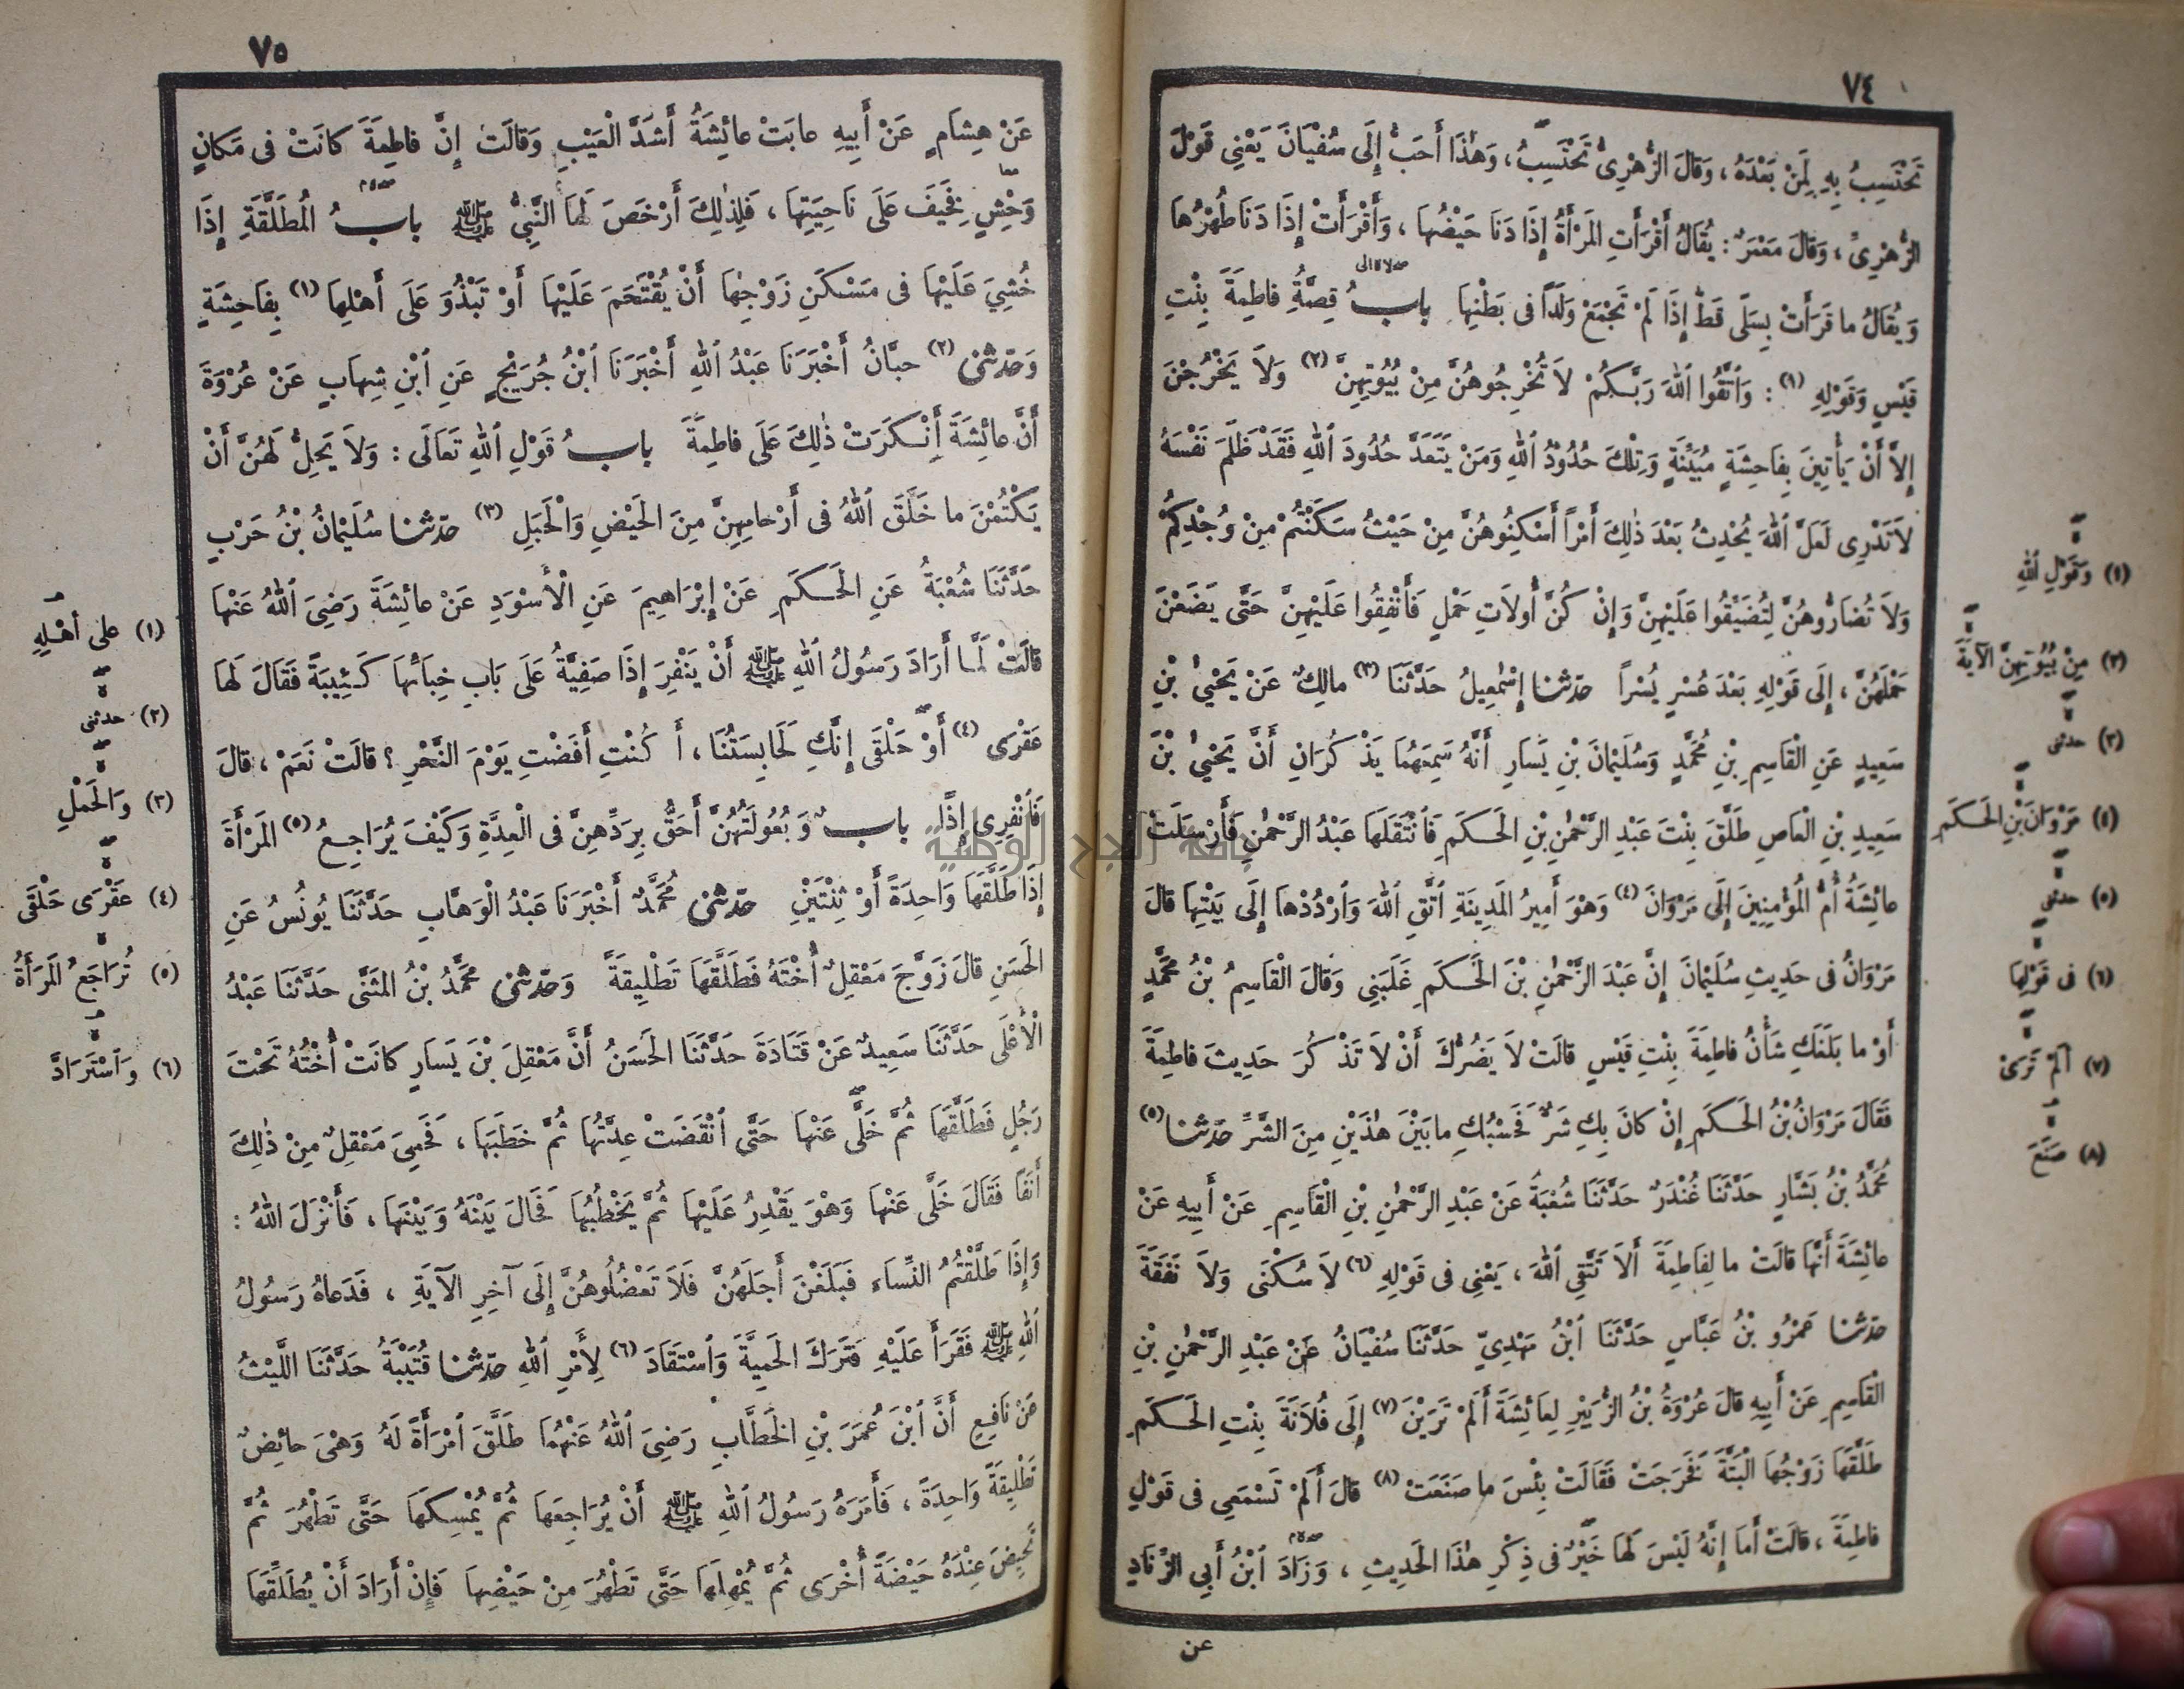 ٧٤
تَحْتَسِبُ بِهِ لِمَنْ بَعْدَهُ ، وَقَالَ الزُّهْرِىُّ تَحْتَسِبُ ، وَهٰذَا أَحَبُّ إِلَى سُفْيَانَ يَعْنِى قَوْلَ
الزُّهْرِىِّ ، وَقَالَ مَعْمَرٌ : يُقَالُ أَقْرَأَتِ الْمَرْأَةُ إِذَا دَنَا حَيْضُهَا ، وَأَقْرَأَتْ إِذَا دَنَا طُهْرُهَا
وَيُقَالُ ما قَرَأَتْ بِسَلًى قَطُّ إِذَا لَمْ تَجْمَعْ وَلَدًا فى بَطْنِهَا باب قِصَّةِ فاطِمَةَ بِنْتِ
قَيْسٍ وَقَوْلِهِ (١) : وَٱتَّقُوا ٱللهَ رَبَّكُمْ لاَ تُخْرِجُوهُنَّ مِنْ بُيُوتِهِنَّ (٢) وَلاَ يَخْرُجْنَ
إِلاَّ أَنْ يَأْتِينَ بِفَاحِشَةٍ مُبَيِّنَةٍ وَتِلْكَ حُدُودُ ٱللهِ وَمَنْ يَتَعَدَّ حُدُودَ ٱللهِ فَقَدْ ظَلَمَ نَفْسَهُ
لاَ تَدْرِى لَعَلَّ ٱللهَ يُحْدِثُ بَعْدَ ذٰلِكَ أَمْرًا أَسْكِنُوهُنَّ مِنْ حَيْثُ سَكَنْتُمْ مِنْ وُجْدِكُمْ
وَلاَ تُضَارُّوهُنَّ لِتُضَيِّقُوا عَلَيْهِنَّ وَإِنْ كُنَّ أُولاَتِ حَمْلٍ فَأَنْفِقُوا عَلَيْهِنَّ حَتَّى يَضَعْنَ
حَمْلَهُنَّ ، إِلَى قَوْلِهِ بَعْدَ عُسْرٍ يُسْرًا حدّثنا إِسْمٰعِيلُ حَدَّثَنَا (٣) مالِكٌ عَنْ يَحْيٰى بْنِ
سَعِيدٍ عَنِ الْقَاسِمِ بْنِ مُحَمَّدٍ وَسُلَيْمَانَ بْنِ يَسَارٍ أَنَّهُ سَمِعَهُمَا يَذْكُرَانِ أَنَّ يَحْيٰى بْنَ
سَعِيدِ بْنِ الْعَاصِ طَلَّقَ بِنْتَ عَبْدِ الرَّحْمٰنِ بْنِ الْحَكَمِ فَٱنْتَقَلَهَا عَبْدُ الرَّحْمٰنِ فَأَرْسَلَتْ
عائِشَةُ أُمُّ الْمُؤْمِنِينَ إِلَى مَرْوَانَ (٤) وَهْوَ أَمِيرُ الْمَدِينَةِ ٱتَّقِ ٱللهَ وَٱرْدُدْهَا إِلَى بَيْتِهَا قالَ
مَرْوَانُ فى حَدِيثِ سُلَيْمَانَ إِنَّ عَبْدَ الرَّحْمٰنِ بْنَ الْحَكَمِ غَلَبَنِى وَقَالَ الْقَاسِمُ بْنُ مُحَمَّدٍ
أَوَ ما بَلَغَكِ شَأْنُ فاطِمَةَ بِنْتِ قَيْسٍ قالَتْ لاَ يَضُرُّكَ أَنْ لاَ تَذْكُرَ حَدِيثَ فاطِمَةَ
فَقَالَ مَرْوَانُ بْنُ الْحَكَمِ إِنْ كانَ بِكِ شَرٌّ فَحَسْبُكِ ما بَيْنَ هٰذَيْنِ مِنَ الشَّرِّ حدّثنا (٥)
مُحَمَّدُ بْنُ بَشَّارٍ حَدَّثَنَا غُنْدَرٌ حَدَّثَنَا شُعْبَةُ عَنْ عَبْدِ الرَّحْمٰنِ بْنِ الْقَاسِمِ عَنْ أَبِيهِ عَنْ
عائِشَةَ أَنَّهَا قالَتْ ما لِفَاطِمَةَ أَلاَ تَتَّقِى ٱللهَ ، يَعْنِى فى قَوْلِهِ (٦) لاَ سُكْنَى وَلاَ نَفَقَةَ
حدّثنا عَمْرُو بْنُ عَبَّاسٍ حَدَّثَنَا ٱبْنُ مَهْدِىٍّ حَدَّثَنَا سُفْيَانُ عَنْ عَبْدِ الرَّحْمٰنِ بْنِ
الْقَاسِمِ عَنْ أَبِيهِ قالَ عُرْوَةُ بْنُ الزُّبَيْرِ لِعَائِشَةَ أَلَمْ تَرَيْنَ (٧) إِلَى فُلاَنَةَ بِنْتِ الْحَكَمِ
طَلَّقَهَا زَوْجُهَا الْبَتَّةَ فَخَرَجَتْ فَقَالَتْ بِئْسَ ما صَنَعَتْ (٨) قالَ أَلَمْ تَسْمَعِى فى قَوْلِ
فاطِمَةَ ، قالَتْ أَمَا إِنَّهُ لَيْسَ لَهَا خَيْرٌ فى ذِكْرِ هٰذَا الْحَدِيثِ ، وَزَادَ ٱبْنُ أَبِى الزِّنَادِ
عن
(١) وَقَوْلِ ٱللهِ
(٢) مِنْ بُيُوتِهِنَّ الآيَةَ
(٣) حدثنى
(٤) مَرْوَانَ بْنِ الْحَكَمِ
(٥) حدثنى
(٦) فى قَوْلِهَا
(٧) أَلَمْ تَرَىْ
(٨) صَنَعَ
٧٥
عَنْ هِشَامٍ عَنْ أَبِيهِ عابَتْ عائِشَةُ أَشَدَّ الْعَيْبِ وَقالَتْ إِنَّ فاطِمَةَ كانَتْ فى مَكانٍ
وَحْشٍ فَخِيفَ عَلَى نَاحِيَتِهَا ، فَلِذٰلِكَ أَرْخَصَ لَهَا النَّبِىُّ ﷺ بابُ الْمُطَلَّقَةِ إِذَا
خُشِىَ عَلَيْهَا فى مَسْكَنِ زَوْجِهَا أَنْ يُقْتَحَمَ عَلَيْهَا أَوْ تَبْذُوَ عَلَى أَهْلِهَا (١) بِفَاحِشَةٍ
وَحدّثنى (٢) حِبَّانُ أَخْبَرَنَا عَبْدُ ٱللهِ أَخْبَرَنَا ٱبْنُ جُرَيْجٍ عَنِ ٱبْنِ شِهَابٍ عَنْ عُرْوَةَ
أَنَّ عائِشَةَ أَنْكَرَتْ ذٰلِكَ عَلَى فاطِمَةَ بابُ قَوْلِ ٱللهِ تَعَالَى : وَلاَ يَحِلُّ لَهُنَّ أَنْ
يَكْتُمْنَ ما خَلَقَ ٱللهُ فى أَرْحامِهِنَّ مِنَ الْحَيْضِ وَالْحَبَلِ (٣) حدّثنا سُلَيْمَانُ بْنُ حَرْبٍ
حَدَّثَنَا شُعْبَةُ عَنِ الْحَكَمِ عَنْ إِبْرَاهِيمَ عَنِ الْأَسْوَدِ عَنْ عائِشَةَ رَضِىَ ٱللهُ عَنْهَا
قالَتْ لَمَّا أَرَادَ رَسُولُ ٱللهِ ﷺ أَنْ يَنْفِرَ إِذَا صَفِيَّةُ عَلَى بَابِ خِبَائِهَا كَئِيبَةً فَقَالَ لَهَا
عَقْرَى (٤) أَوْ حَلْقَى إِنَّكِ لَحَابِسَتُنَا ، أَكُنْتِ أَفَضْتِ يَوْمَ النَّحْرِ ؟ قالَتْ نَعَمْ ، قالَ
فَٱنْفِرِى إِذًا بابٌ وَبُعُولَتُهُنَّ أَحَقُّ بِرَدِّهِنَّ فى الْعِدَّةِ وَكَيْفَ يُرَاجِعُ (٥) الْمَرْأَةَ
إِذَا طَلَّقَهَا وَاحِدَةً أَوْ ثِنْتَيْنِ حدّثنى مُحَمَّدٌ أَخْبَرَنَا عَبْدُ الْوَهَّابِ حَدَّثَنَا يُونُسُ عَنِ
الْحَسَنِ قالَ زَوَّجَ مَعْقِلٌ أُخْتَهُ فَطَلَّقَهَا تَطْلِيقَةً وَحدّثنى مُحَمَّدُ بْنُ الْمُثَنَّى حَدَّثَنَا عَبْدُ
الْأَعْلَى حَدَّثَنَا سَعِيدٌ عَنْ قَتَادَةَ حَدَّثَنَا الْحَسَنُ أَنَّ مَعْقِلَ بْنَ يَسَارٍ كانَتْ أُخْتُهُ تَحْتَ
رَجُلٍ فَطَلَّقَهَا ثُمَّ خَلَّى عَنْهَا حَتَّى ٱنْقَضَتْ عِدَّتُهَا ثُمَّ خَطَبَهَا ، فَحَمِىَ مَعْقِلٌ مِنْ ذٰلِكَ
أَنَفًا فَقَالَ خَلَّى عَنْهَا وَهْوَ يَقْدِرُ عَلَيْهَا ثُمَّ يَخْطُبُهَا فَحَالَ بَيْنَهُ وَبَيْنَهَا ، فَأَنْزَلَ ٱللهُ :
وَإِذَا طَلَّقْتُمُ النِّسَاء فَبَلَغْنَ أَجَلَهُنَّ فَلاَ تَعْضُلُوهُنَّ إِلَى آخِرِ الآيَةِ ، فَدَعاهُ رَسُولُ
ٱللهِ ﷺ فَقَرَأَ عَلَيْهِ فَتَرَكَ الْحَمِيَّةَ وَٱسْتَقَادَ (٦) لِأَمْرِ ٱللهِ حدّثنا قُتَيْبَةُ حَدَّثَنَا اللَّيْثُ
عَنْ نَافِعٍ أَنَّ ٱبْنَ عُمَرَ بْنِ الْخَطَّابِ رَضِىَ ٱللهُ عَنْهُمَا طَلَّقَ ٱمْرَأَةً لَهُ وَهْىَ حائِضٌ
تَطْلِيقَةً وَاحِدَةً ، فَأَمَرَهُ رَسُولُ ٱللهِ ﷺ أَنْ يُرَاجِعَهَا ثُمَّ يُمْسِكَهَا حَتَّى تَطْهُرَ ثُمَّ
تَحِيضَ عِنْدَهُ حَيْضَةً أُخْرَى ثُمَّ يُمْهِلَهَا حَتَّى تَطْهُرَ مِنْ حَيْضِهَا فَإِنْ أَرَادَ أَنْ يُطَلِّقَهَا
(١) على أَهْلِهِ
(٢) حدثنى
(٣) وَالْحَمْلِ
(٤) عَقْرَى حَلْقَى
(٥) تُرَاجَعُ الْمَرْأَةُ
(٦) وَٱسْتَرَادَ
جامعة النجاح الوطنية